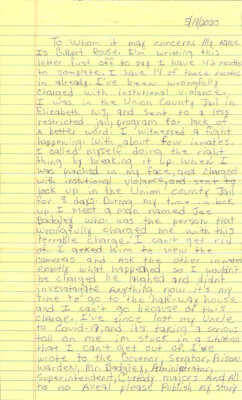 5/19/2020
To Whom it may concerns My Name
Is Gilbert Rouse. I'm writing this
letter first off to say I have 42 months
to complete. I have 14 of those months
in already. I've been wrongfully
charged with instutional violance.
I was in the Union County Jail in
Elizabeth N.J, and sent to a less
restricted jail program for lack of
A better word. I witnessed a fight
happening with about four inmates.
I called myself doing the right
thing by breaking it up. When I
was punched in my face, and charged
with instutional violance, and sent to
lock up in the Union county Jail
for 8 days. During my time in lock
up I meet a man named Jose
Badgley who was the person that
wrongfully charged me with this
terrible charge. I can't get rid
of. I asked him to view the
cameras and ask the other inmates
exactly what happened so I wouldn't
be charged he laughed and didn't
investatigate Anything now it's my
time to go to the half-way house
and I can't go because of this
charge. I've since lost my Uncle
to Covid-19, and it's taking a serious
toll on me I'm stuck in a situation
that I can't get out of. I've
wrote to the Govenor, Senator, Prison
warden, Mr. Badgley, Administrator,
Superintendent, Custody majors And All
to no Aveal please Publish my story